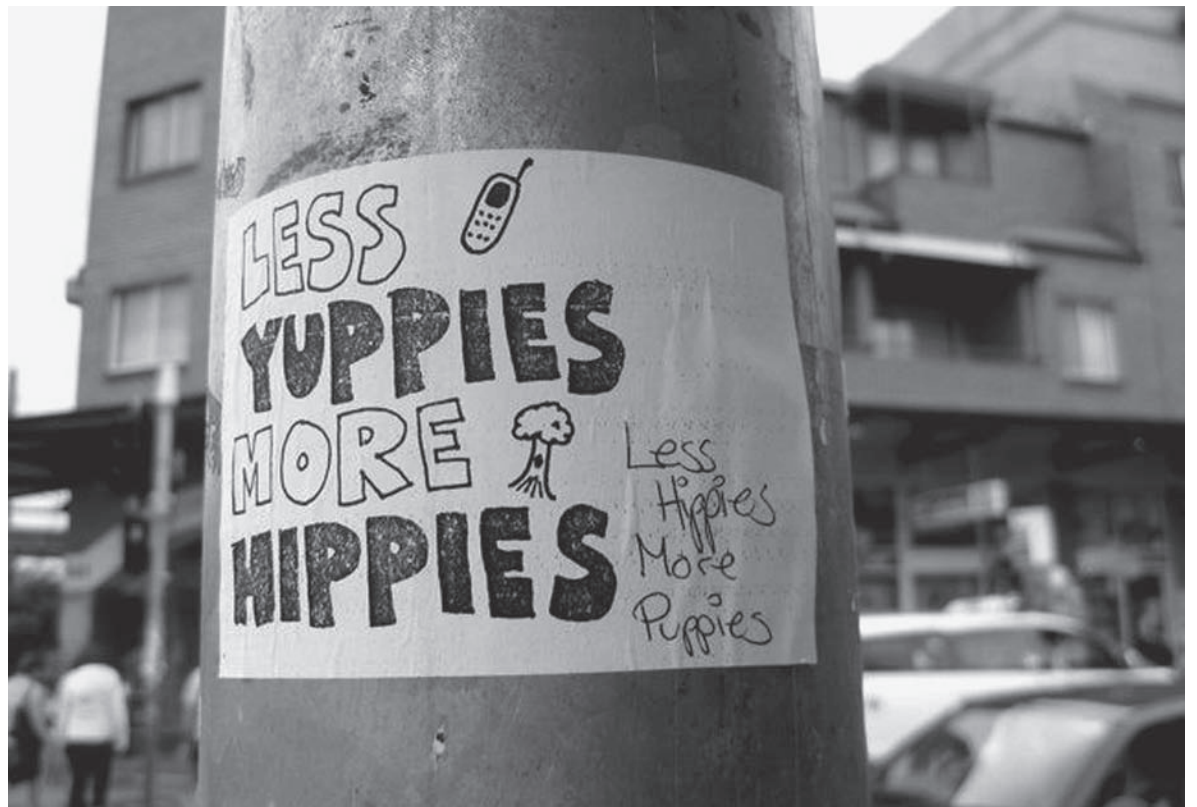 LESS
YUPPIES
MORE
HIPPIES
Less
Hippies
More
Puppies